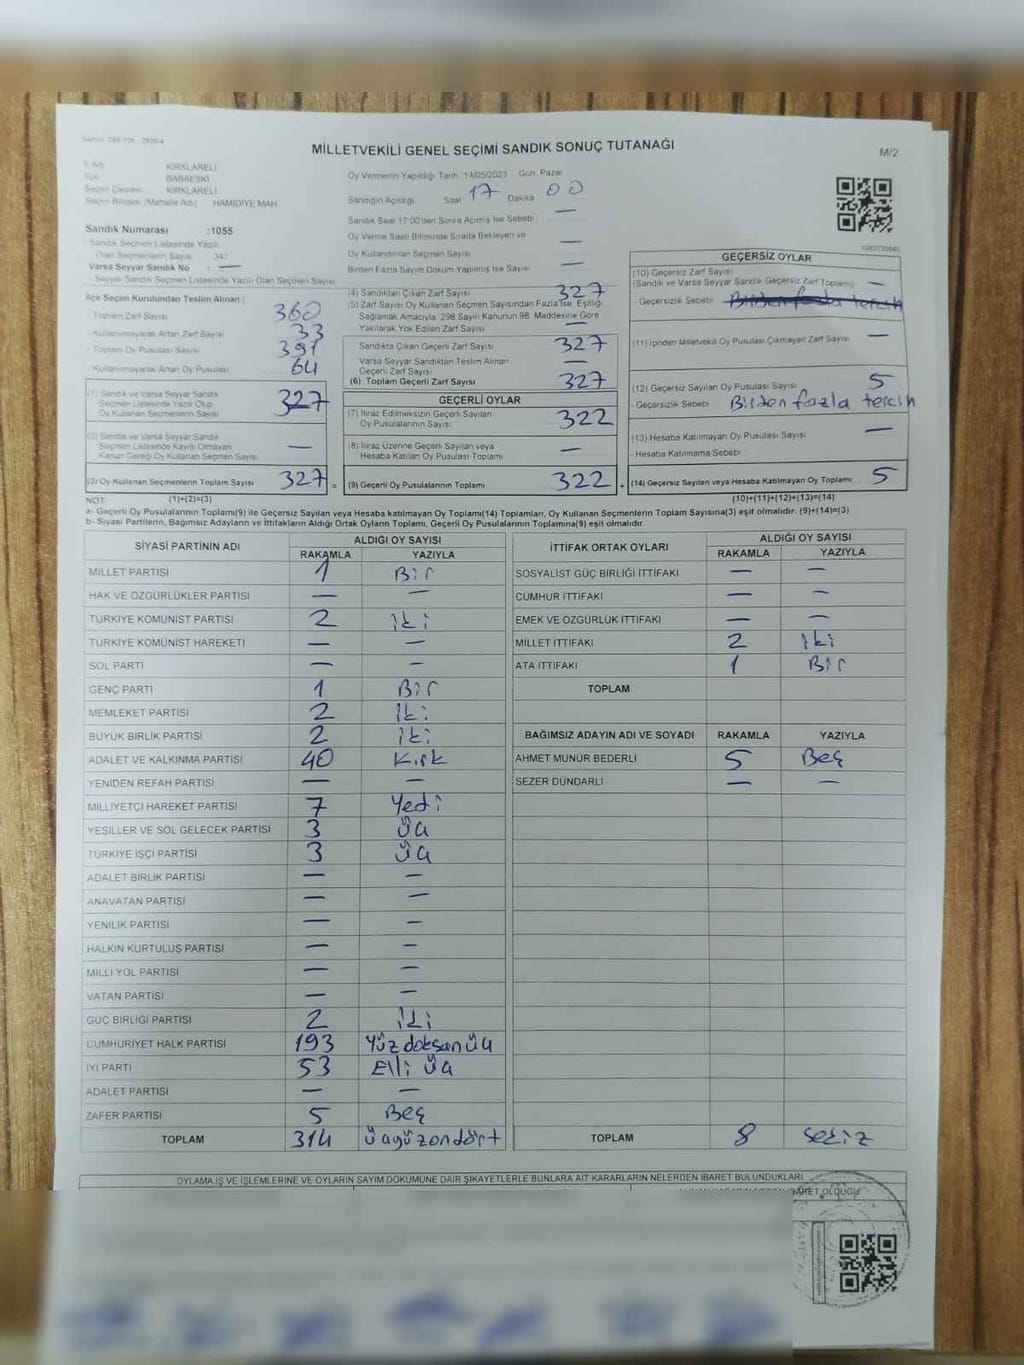 MİLLETVEKİLİ GENEL SEÇİMİ SANDIK SONUÇ TUTANAĞI
M/2
KIRKLARELİ
BABAESKİ
Seçim Çevresi KIRKLARELİ
Seçim Bölgesi (Mahalle Adı) HAMİDİYE MAH.
Sandık Numarası :1055
- Sandık Seçmen Listesinde Yazılı
Olan Seçmenlerin Sayısı
Varsa Seyyar Sandık No : —
- Seyyar Sandık Seçmen Listesinde Yazılı Olan Seçmen Sayısı
Oy Vermenin Yapıldığı Tarih: 14/05/2023 Gün: Pazar
Sandığın Açıldığı Saat 17 Dakika 00
Sandık Saat 17:00'den Sonra Açılmış İse Sebebi —
Oy Verme Saati Bitiminde Sırada Bekleyen ve
Oy Kullandırılan Seçmen Sayısı —
Birden Fazla Sayım Döküm Yapılmış İse Sayısı —
İlçe Seçim Kurulundan Teslim Alınan
- Toplam Zarf Sayısı 360
- Kullanılmayarak Artan Zarf Sayısı 33
- Toplam Oy Pusulası Sayısı 391
- Kullanılmayarak Artan Oy Pusulası 64
(1) Sandık ve Varsa Seyyar Sandık
Seçmen Listesinde Yazılı Olup
Oy Kullanan Seçmenlerin Sayısı 327
(2) Sandık ve Varsa Seyyar Sandık
Seçmen Listesinde Kayıtlı Olmayan
Kanun Gereği Oy Kullanan Seçmen Sayısı —
(3) Oy Kullanan Seçmenlerin Toplam Sayısı 327 =
(4) Sandıktan Çıkan Zarf Sayısı 327
(5) Zarf Sayısı Oy Kullanan Seçmen Sayısından Fazla İse, Eşitliği
Sağlamak Amacıyla, 298 Sayılı Kanunun 98. Maddesine Göre
Yakılarak Yok Edilen Zarf Sayısı —
Sandıkta Çıkan Geçerli Zarf Sayısı 327
Varsa Seyyar Sandıktan Teslim Alınan
Geçerli Zarf Sayısı —
(6) Toplam Geçerli Zarf Sayısı 327
GEÇERLİ OYLAR
(7) İtiraz Edilmeksizin Geçerli Sayılan
Oy Pusulalarının Sayısı 322
(8) İtiraz Üzerine Geçerli Sayılan veya
Hesaba Katılan Oy Pusulası Toplamı —
(9) Geçerli Oy Pusulalarının Toplamı 322 +
GEÇERSİZ OYLAR
(10) Geçersiz Zarf Sayısı
(Sandık ve Varsa Seyyar Sandık Geçersiz Zarf Toplamı) —
- Geçersizlik Sebebi Birden fazla tercih
(11) İçinden Milletvekili Oy Pusulası Çıkmayan Zarf Sayısı —
(12) Geçersiz Sayılan Oy Pusulası Sayısı 5
- Geçersizlik Sebebi Birden fazla tercih
(13) Hesaba Katılmayan Oy Pusulası Sayısı —
- Hesaba Katılmama Sebebi
(14) Geçersiz Sayılan veya Hesaba Katılmayan Oy Toplamı 5
NOT: (1)+(2)=(3) (10)+(11)+(12)+(13)=(14)
a- Geçerli Oy Pusulalarının Toplamı(9) ile Geçersiz Sayılan veya Hesaba katılmayan Oy Toplamı(14) Toplamları, Oy Kullanan Seçmenlerin Toplam Sayısına(3) eşit olmalıdır. (9)+(14)=(3)
b- Siyasi Partilerin, Bağımsız Adayların ve İttifakların Aldığı Ortak Oyların Toplamı, Geçerli Oy Pusulalarının Toplamına(9) eşit olmalıdır.
SİYASİ PARTİNİN ADI ALDIĞI OY SAYISI
RAKAMLA YAZIYLA
MİLLET PARTİSİ 1 Bir
HAK VE ÖZGÜRLÜKLER PARTİSİ — —
TÜRKİYE KOMÜNİST PARTİSİ 2 iki
TÜRKİYE KOMÜNİST HAREKETİ — —
SOL PARTİ — —
GENÇ PARTİ 1 Bir
MEMLEKET PARTİSİ 2 iki
BÜYÜK BİRLİK PARTİSİ 2 iki
ADALET VE KALKINMA PARTİSİ 40 Kırk
YENİDEN REFAH PARTİSİ — —
MİLLİYETÇİ HAREKET PARTİSİ 7 Yedi
YEŞİLLER VE SOL GELECEK PARTİSİ 3 üç
TÜRKİYE İŞÇİ PARTİSİ 3 üç
ADALET BİRLİK PARTİSİ — —
ANAVATAN PARTİSİ — —
YENİLİK PARTİSİ — —
HALKIN KURTULUŞ PARTİSİ — —
MİLLİ YOL PARTİSİ — —
VATAN PARTİSİ — —
GÜÇ BİRLİĞİ PARTİSİ 2 iki
CUMHURİYET HALK PARTİSİ 193 Yüzdoksanüç
İYİ PARTİ 53 Elli üç
ADALET PARTİSİ — —
ZAFER PARTİSİ 5 Beş
TOPLAM 314 üçyüzondört
İTTİFAK ORTAK OYLARI ALDIĞI OY SAYISI
RAKAMLA YAZIYLA
SOSYALİST GÜÇ BİRLİĞİ İTTİFAKI — —
CUMHUR İTTİFAKI — —
EMEK VE ÖZGÜRLÜK İTTİFAKI — —
MİLLET İTTİFAKI 2 iki
ATA İTTİFAKI 1 Bir
TOPLAM
BAĞIMSIZ ADAYIN ADI VE SOYADI RAKAMLA YAZIYLA
AHMET MÜNÜR BEDERLİ 5 Beş
SEZER DÜNDARLI — —
TOPLAM 8 sekiz
OYLAMA İŞ VE İŞLEMLERİNE VE OYLARIN SAYIM DÖKÜMÜNE DAİR ŞİKAYETLERLE BUNLARA AİT KARARLARIN NELERDEN İBARET BULUNDUKLARI